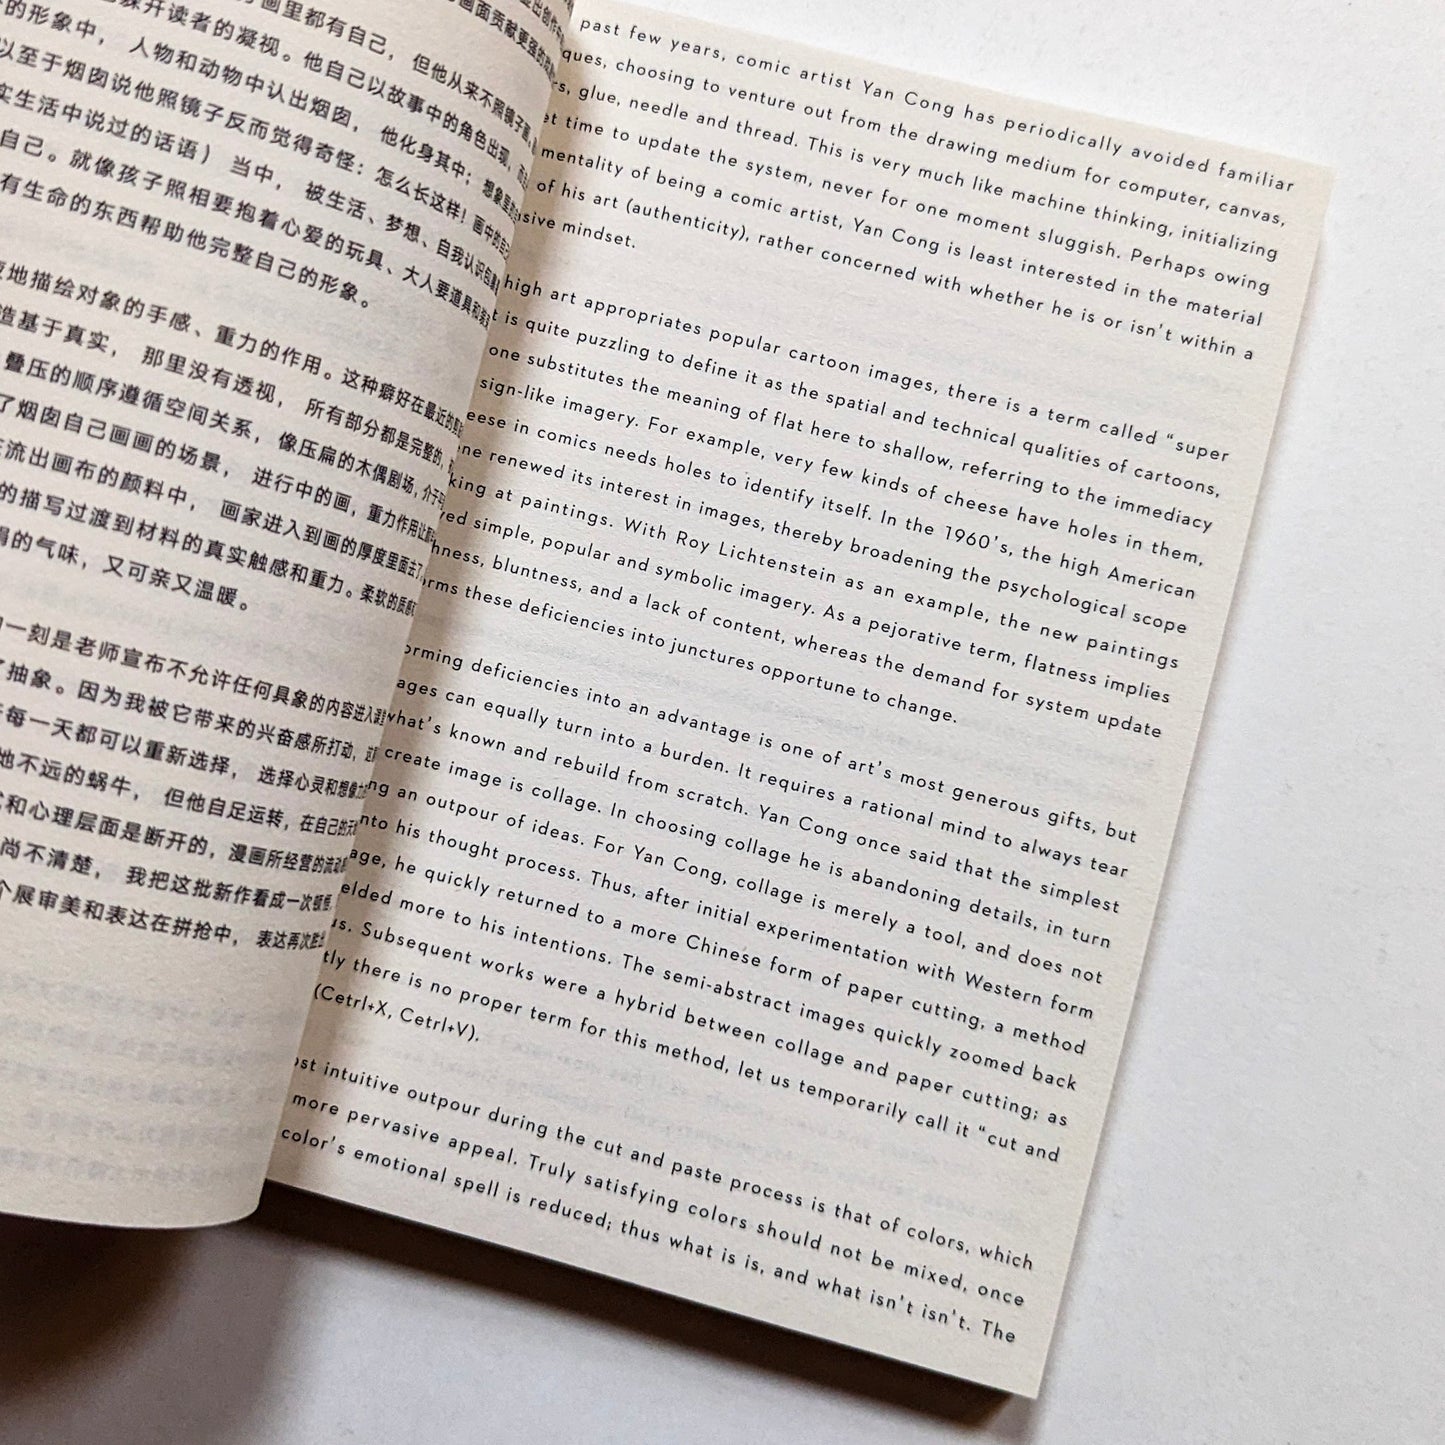 画里都有自己， 但他从来不照镜子画
躲开读者的凝视。他自己以故事中的角色出现，
的形象中， 人物和动物中认出烟囱， 他化身其中；想象
以至于烟囱说他照镜子反而觉得奇怪：怎么长这样！画中的
实生活中说过的话语） 当中， 被生活、梦想、自我认识包
自己。就像孩子照相要抱着心爱的玩具、大人要道具和
有生命的东西帮助他完整自己的形象。
地描绘对象的手感、重力的作用。这种癖好在最近的
造基于真实， 那里没有透视， 所有部分都是完整的，
叠压的顺序遵循空间关系，像压扁的木偶剧场，介于
了烟囱自己画画的场景， 进行中的画，重力作用让
流出画布的颜料中， 画家进入到画的厚度里面去了
的描写过渡到材料的真实触感和重力。柔软的质感
的气味，又可亲又温暖。
一刻是老师宣布不允许任何具象的内容进入
了抽象。因为我被它带来的兴奋感所打动，
每一天都可以重新选择， 选择心灵和想像力
地不远的蜗牛， 但他自足运转，在自己的
和心理层面是断开的，漫画所经营的流动
尚不清楚， 我把这批新作看成一次
个展审美和表达在拼抢中，表达再次
past few years, comic artist Yan Cong has periodically avoided familiar
ques, choosing to venture out from the drawing medium for computer, canvas,
rs, glue, needle and thread. This is very much like machine thinking, initializing
et time to update the system, never for one moment sluggish. Perhaps owing
mentality of being a comic artist, Yan Cong is least interested in the material
of his art (authenticity), rather concerned with whether he is or isn't within a
sive mindset.
high art appropriates popular cartoon images, there is a term called “super
t is quite puzzling to define it as the spatial and technical qualities of cartoons,
one substitutes the meaning of flat here to shallow, referring to the immediacy
sign-like imagery. For example, very few kinds of cheese have holes in them,
eese in comics needs holes to identify itself. In the 1960's, the high American
ene renewed its interest in images, thereby broadening the psychological scope
king at paintings. With Roy Lichtenstein as an example, the new paintings
ed simple, popular and symbolic imagery. As a pejorative term, flatness implies
hness, bluntness, and a lack of content, whereas the demand for system update
orms these deficiencies into junctures opportune to change.
orming deficiencies into an advantage is one of art's most generous gifts, but
ages can equally turn into a burden. It requires a rational mind to always tear
what's known and rebuild from scratch. Yan Cong once said that the simplest
create image is collage. In choosing collage he is abandoning details, in turn
ng an outpour of ideas. For Yan Cong, collage is merely a tool, and does not
nto his thought process. Thus, after initial experimentation with Western form
age, he quickly returned to a more Chinese form of paper cutting, a method
elded more to his intentions. The semi-abstract images quickly zoomed back
us. Subsequent works were a hybrid between collage and paper cutting; as
tly there is no proper term for this method, let us temporarily call it “cut and
(Cetrl+X, Cetrl+V).
ost intuitive outpour during the cut and paste process is that of colors, which
more pervasive appeal. Truly satisfying colors should not be mixed, once
color's emotional spell is reduced; thus what is is, and what isn't isn't. The